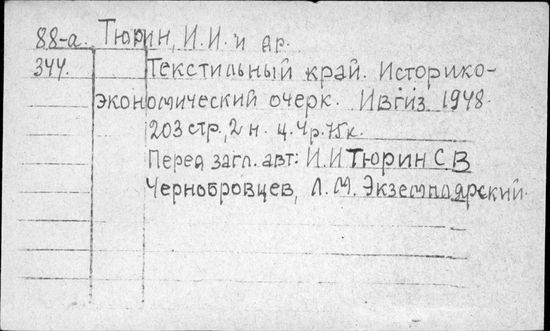 88-а. Тюрин, И.И. и др.
344. Текстильный край. Историко-
экономический очерк. Ивгиз 1948.
203 стр., 2 н. ц. 4р. 75к.
Перед загл. авт: И.И Тюрин С В
Чернобровцев, Л.М. Экземплярский.